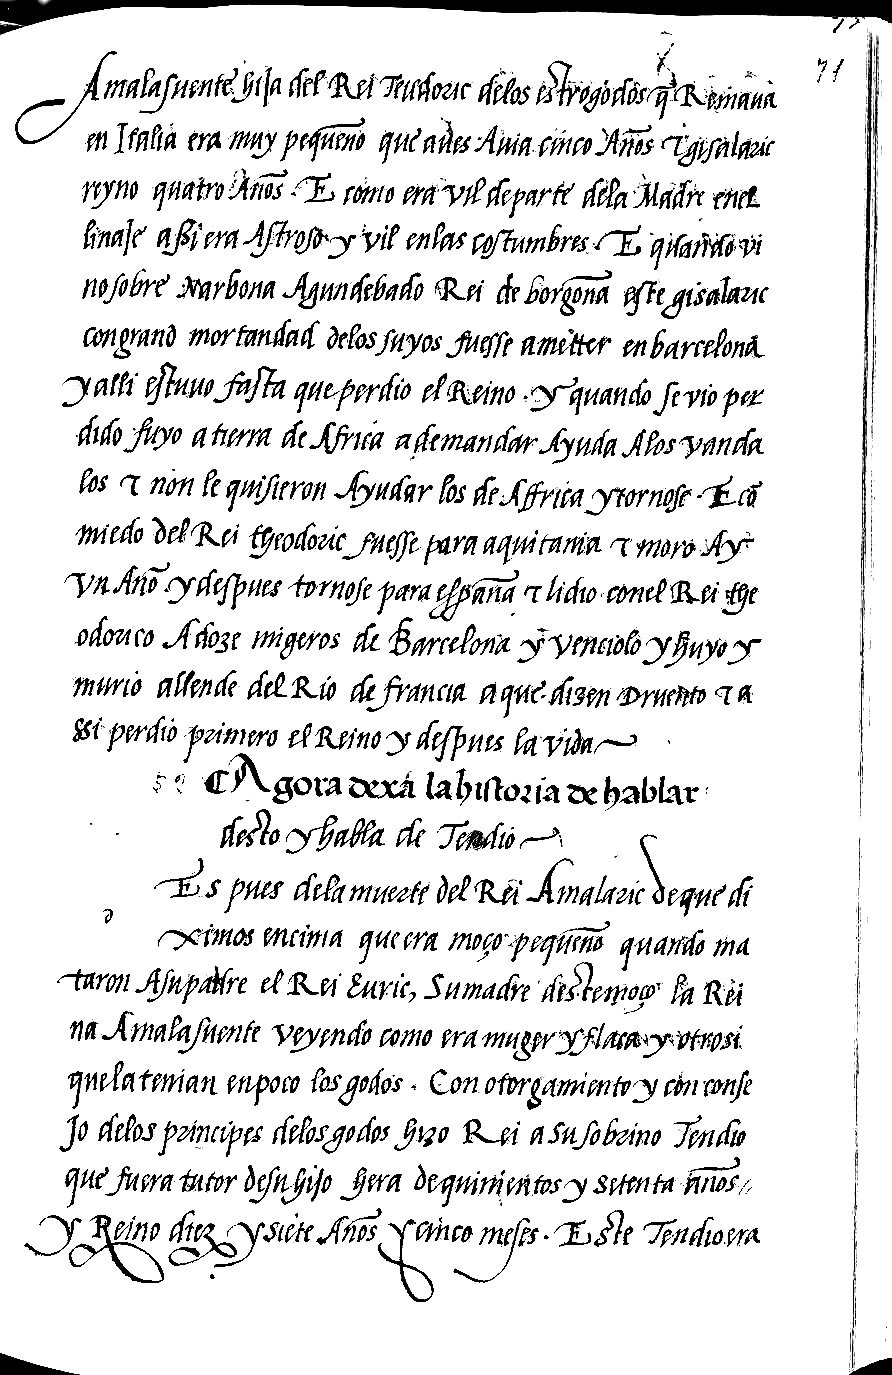 71
Amalasuente hija del Rei Teudoric delos estrogodos q̃ Reinaua
en Italia era muy pequeño que aues Auia cinco Años ⁊ gisalaric
reyno quatro Años. E como era vil de parte dela Madre enel
linaje assi era Astroso y vil en las costumbres. E quando vi
no sobre Narbona Agundebado Rei de borgoña este gisalaric
con grand mortandad delos suyos fuesse a metter en barcelona
y alli estuuo fasta que perdio el Reino. y quando se vio per
dido fuyo a tierra de Africa a demandar Ayuda Alos vanda
los ⁊ non le quisieron Ayudar los de Affrica y tornose. E cõ
miedo del Rei theodoric fuesse para aquitania ⁊ moro Ay
vn Año. y despues tornose para españa ⁊ lidio conel Rei the
odorico A doze migeros de Barcelona y venciolo y huyo y
murio allende del Rio de francia a que dizen Druento ⁊ a
ssi perdio primero el Reino y despues la vida
59 Agora dexa la historia de hablar
desto y habla de Tendio
Es pues dela muerte del Rei Amalaric de que di
ximos encima que era moço pequeño quando ma
taron Asu padre el Rei Euric, Su madre deste moço la Rei
na Amalasuente veyendo como era muger y flaca y otrosi
que la tenian en poco los godos. Con otorgamiento y con conse
jo delos principes delos godos hizo Rei a su sobrino Tendio
que fuera tutor de su hijo hera de quinientos y setenta años
y Reino diez y siete Años y cinco meses. Este Tendio era